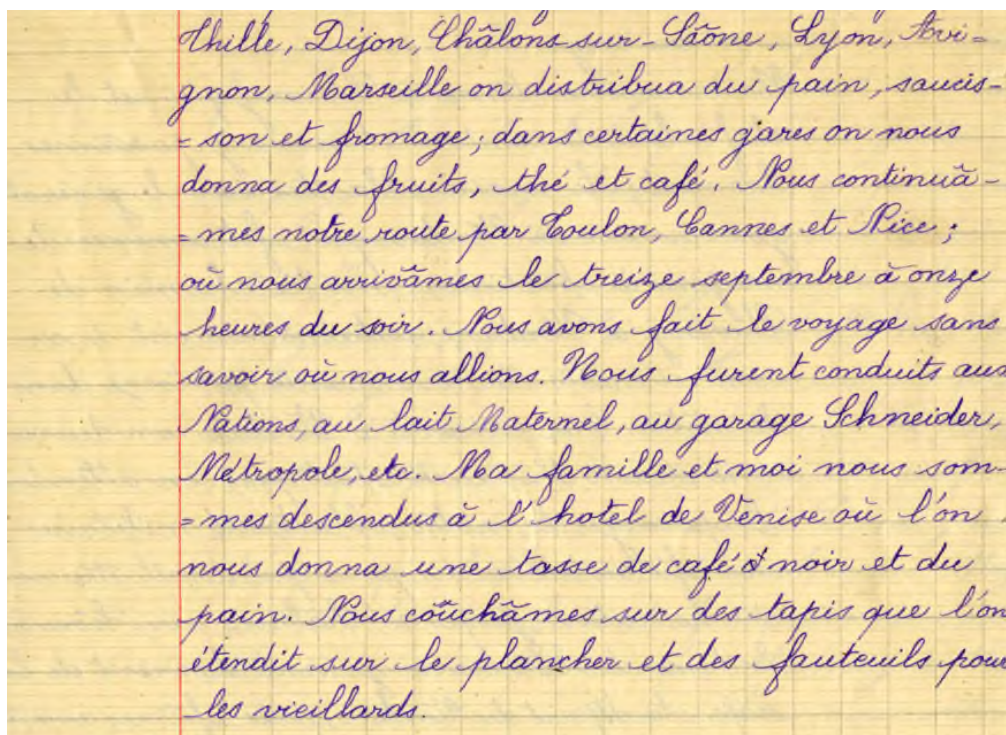 Thille, Dijon, Châlons-sur-Saône, Lyon, Avi=
gnon, Marseille on distribua du pain, saucis-
=son et fromage; dans certaines gares on nous
donna des fruits, thé et café. Nous continuâ-
=mes notre route par Toulon, Cannes et Nice;
où nous arrivâmes le treize septembre à onze
heures du soir. Nous avons fait le voyage sans
savoir où nous allions. Nous furent conduits aux
Nations, au lait Maternel, au garage Schneider,
Métropole, etc. Ma famille et moi nous som-
=mes descendus à l'hotel de Venise où l'on
nous donna une tasse de café noir et du
pain. Nous coûchâmes sur des tapis que l'on
étendit sur le plancher et des fauteuils pour
les vieillards.